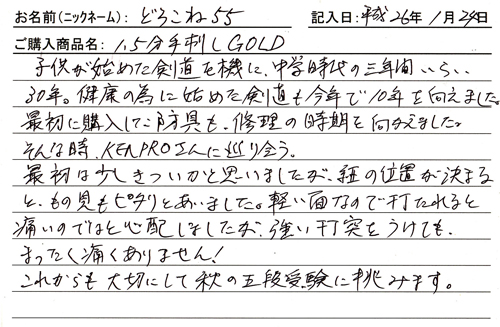 お名前(ニックネーム): どろこね55 記入日: 平成26年1月24日
ご購入商品名: 1.5分手刺しGOLD
子供が始めた剣道を機に、中学時代の三年間いらい
30年。健康の為に始めた剣道も今年で10年を向えました。
最初に購入した防具も、修理の時期を向えました。
そんな時、KENPROさんに巡り会う。
最初は少しきついかと思いましたが、紐の位置が決まる
と、もの見もピタリとあいました。軽い面なので打たれると
痛いのではと心配しましたが、強い打突をうけても、
まったく痛くありません!
これからも大切にして秋の五段受験に挑みます。